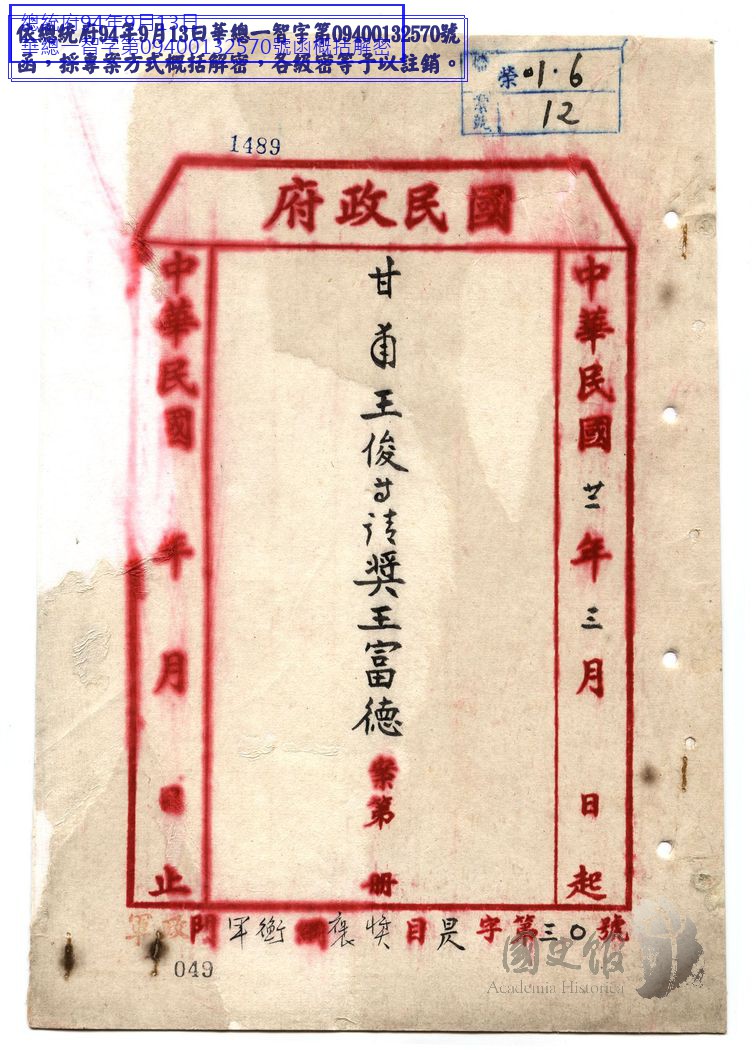 總統府94年9月13日
華總一智字第09400132570號函概括解密
依總統府94年9月13日華總一智字第09400132570號
函，採專案方式概括解密，各級密等予以註銷。
榮01.6
12
1489
國民政府
中華民國廿二年三月 日起
甘肅王俊等請獎王富德案第 冊
中華民國 年 月 日止
軍政門軍衡 褒獎目 字第三〇號
049
國史館
Academia Historica